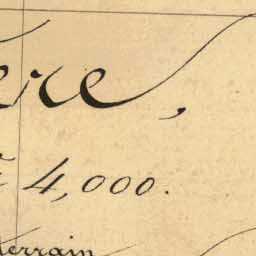 ere,
4,000.
terrain